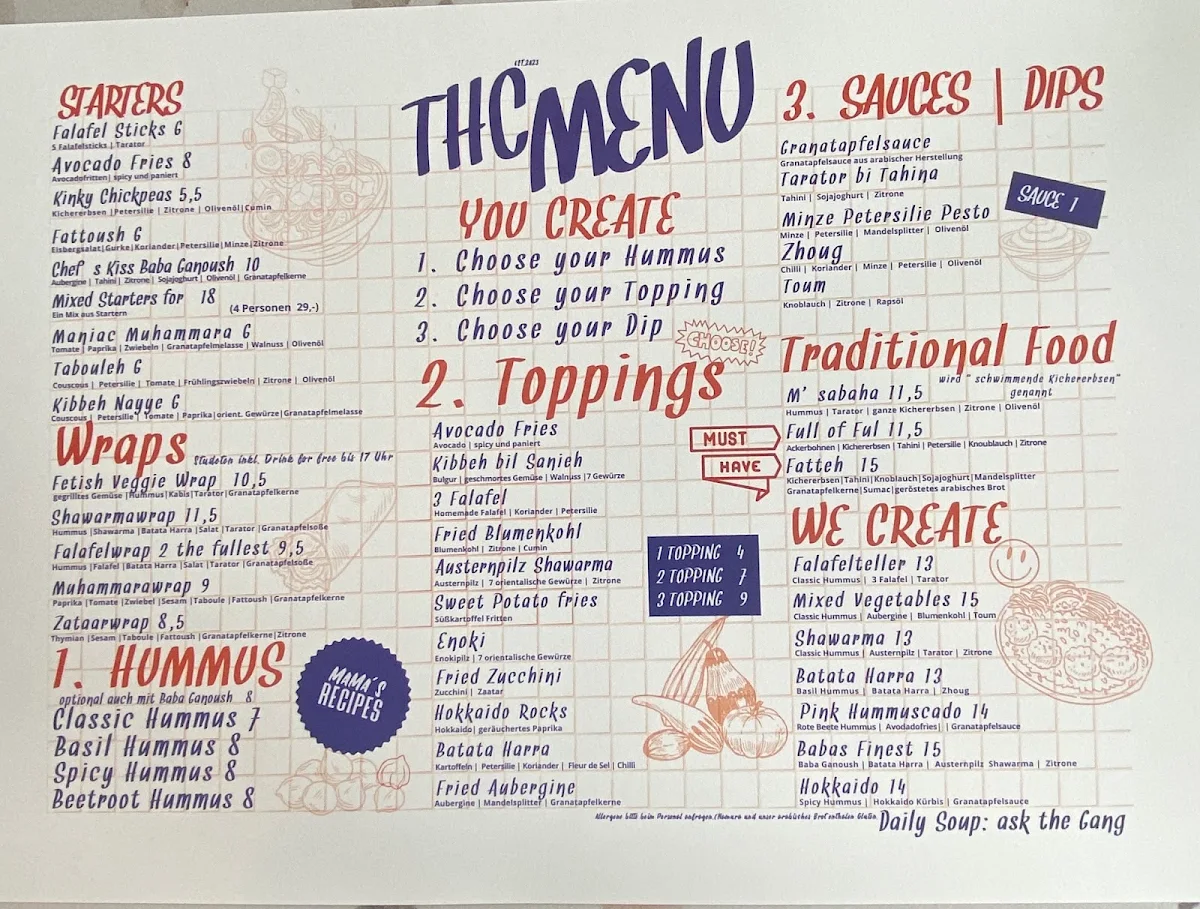 STARTERS
Falafel Sticks 6
5 Falafelsticks | Tarator
Avocado Fries 8
Avocadofritten| spicy und paniert
Kinky Chickpeas 5,5
Kichererbsen |Petersilie | Zitrone | Olivenöl|Cumin
Fattoush 6
Eisbergsalat|Gurke|Koriander|Petersilie|Minze|Zitrone
Chef´s Kiss Baba Ganoush 10
Aubergine | Tahini | Zitrone | Sojajoghurt | Olivenöl | Granatapfelkerne
Mixed Starters for 18 (4 Personen 29,-)
Ein Mix aus Startern
Maniac Muhammara 6
Tomate | Paprika | Zwiebeln | Granatapfelmelasse | Walnuss | Olivenöl
Tabouleh 6
Couscous | Petersilie | Tomate | Frühlingszwiebeln | Zitrone | Olivenöl
Kibbeh Nayye 6
Couscous | Petersilie | Tomate | Paprika|orient. Gewürze|Granatapfelmelasse
Wraps Studenten inkl. Drink for free bis 17 Uhr
Fetish Veggie Wrap 10,5
gegrilltes Gemüse |Hummus|Kabis|Tarator|Granatapfelkerne
Shawarmawrap 11,5
Hummus |Shawarma |Batata Harra |Salat |Tarator |Granatapfelsoße
Falafelwrap 2 the fullest 9,5
Hummus |Falafel |Batata Harra |Salat |Tarator |Granatapfelsoße
Muhammarawrap 9
Paprika |Tomate |Zwiebel |Sesam |Taboule |Fattoush |Granatapfelkerne
Zataarwrap 8,5
Thymian |Sesam |Taboule |Fattoush |Granatapfelkerne|Zitrone
1. HUMMUS
optional auch mit Baba Ganoush 8
Classic Hummus 7
Basil Hummus 8
Spicy Hummus 8
Beetroot Hummus 8
MAMA´S
RECIPES
EST.2023
THC MENU
YOU CREATE
1. Choose your Hummus
2. Choose your Topping
3. Choose your Dip
CHOOSE!
2. Toppings
Avocado Fries
Avocado | spicy und paniert
Kibbeh bil Sanieh
Bulgur | geschmortes Gemüse | Walnuss |7 Gewürze
3 Falafel
Homemade Falafel | Koriander | Petersilie
Fried Blumenkohl
Blumenkohl | Zitrone | Cumin
Austernpilz Shawarma
Austernpilz | 7 orientalische Gewürze | Zitrone
Sweet Potato fries
Süßkartoffel Fritten
Enoki
Enokipilz | 7 orientalische Gewürze
Fried Zucchini
Zucchini | Zaatar
Hokkaido Rocks
Hokkaido| geräuchertes Paprika
Batata Harra
Kartoffeln | Petersilie | Koriander | Fleur de Sel | Chilli
Fried Aubergine
Aubergine | Mandelsplitter | Granatapfelkerne
MUST
HAVE
1 TOPPING 4
2 TOPPING 7
3 TOPPING 9
3. SAUCES | DIPS
Granatapfelsauce
Granatapfelsauce aus arabischer Herstellung
Tarator bi Tahina
Tahini | Sojajoghurt | Zitrone
Minze Petersilie Pesto
Minze | Petersilie | Mandelsplitter | Olivenöl
Zhoug
Chilli | Koriander | Minze | Petersilie | Olivenöl
Toum
Knoblauch | Zitrone | Rapsöl
SAUCE 1
Traditional Food
M´ sabaha 11,5 wird " schwimmende Kichererbsen"
genannt
Hummus | Tarator | ganze Kichererbsen | Zitrone | Olivenöl
Full of Ful 11,5
Ackerbohnen | Kichererbsen | Tahini | Petersilie | Knoublauch | Zitrone
Fatteh 15
Kichererbsen|Tahini|Knoblauch|Sojajoghurt|Mandelsplitter
Granatapfelkerne|Sumac|geröstetes arabisches Brot
WE CREATE
Falafelteller 13
Classic Hummus | 3 Falafel | Tarator
Mixed Vegetables 15
Classic Hummus | Aubergine | Blumenkohl | Toum
Shawarma 13
Classic Hummus | Austernpilz | Tarator | Zitrone
Batata Harra 13
Basil Hummus | Batata Harra | Zhoug
Pink Hummuscado 14
Rote Beete Hummus | Avodadofries| | Granatapfelsauce
Babas Finest 15
Baba Ganoush | Batata Harra | Austernpilz Shawarma | Zitrone
Hokkaido 14
Spicy Hummus | Hokkaido Kürbis | Granatapfelsauce
Allergene bitte beim Personal anfragen.(Humara und unser arabisches Brot enthalten Gluten.
Daily Soup: ask the Gang